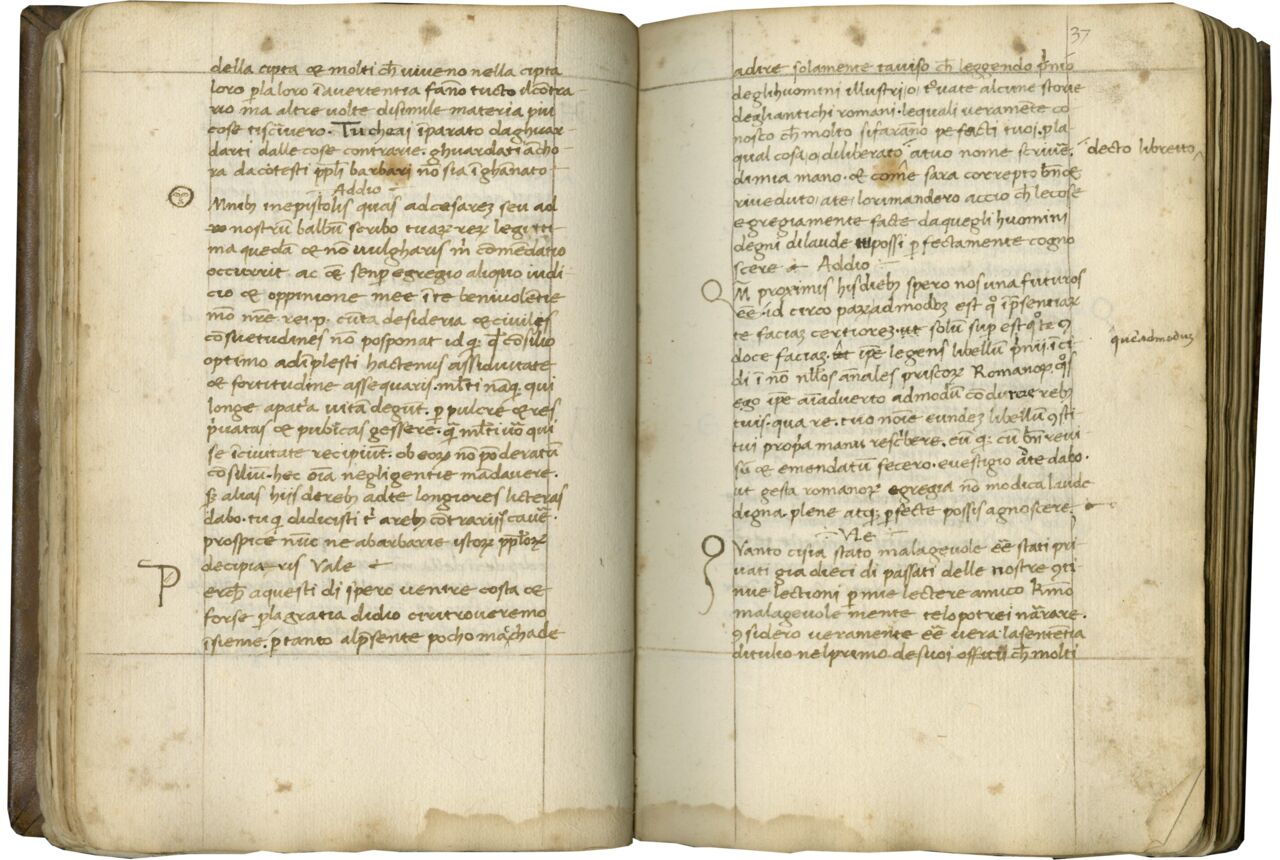 della cipta & molti ch̄ viveno nella cipta
loro p̱ la loro ī avertentia fano tucto il cōtra
rio ma altre volte di simile materia piu
cose ti scivero. Tu che ai īparato da ghuar
darti dalle cose contrarie. ghuardati ācho
ra da cotesti pp̄li barbari nō sia īghanato
Addio
Mnib; in epistolis quas ad cesarez seu ad
nostrū balbū scribo tuaꝝ reꝝ legitti
ma quedā & nō vulgharis m̄ cōmēdatio
occurrit ac de senp̱ egregio aliquo iudi
cio & oppinione mee ī te benivolentie
mō nr̄e rei p. cūta desideria & civiles
cōsuetudines nō posponat id q; q̄ cōsilio
optimo adīplesti hactenus assiduitate
& fortitudine assequaris. ml̄ti nāq; qui
longe apatr̄a vitā degūt. p̱ pulcre & res
p̄vatas & publ̄cas gessere. q̄ ml̄ti
se ī civitate recipiūt. ob eoꝝ nō poderatū
cōsiliū. hec oīa negligentie mādavere.
s; alias hijs de reb; ad te longiores licteras
dabo. tu q; didicisti t' a reb; cōtrarijs cavē.
prospice nūc ne a barbarie istoꝝ pp̄loꝝ
decipia ris Vale
P
erch̄ a questi di spero ventre costa &
forse p̱ la gratia di dio ci ritroveremo
īsieme. p̱ tanto al p̄sente pocho macchade
37
a dire solamente t aviso ch̄ leggendo
degli huomini illustri alcune storie
degli antichi romani. le quali veramēte co
nosco ch̄ molto si farāno pe facti tuoi. p̱ la
qual cosa o diliberato a tuo nome scrivē.
decto libretto
di mia mano. & come sara correpto bn̄ &
riveduto a te lo rimandero accio ch̄ le cose
egregiamente facte da quegli huomini
degni di laude tu possi p̱ fectamente cogno
scere Addio
Q
M proximis his dieb; spero nos una futuros
eē. id circo paꝝ admoduz est q' ī p̄sentiaꝝ
te faciaz certiorez. ut solū sup est
doce faciaz. ipe legens libellū
quēadmoduz
di ī nō nll̄os ānales priscoꝝ Romanoꝝ. q̄s
ego ipe aīadverto admodū cōducere reb;
tuis. qua re. tuo noīe eundez libellū ꝯsti
tui propr̄a manu rescribere. cū q; cū bn̄ revi
sū & emendatū fecero. evestigio dabo.
ut gesta romanoꝝ egregia nō modica laude
digna plene atq; p̱fecte possis agnoscere.
Vle
Q
Vanto ci sia stato malagevole eē stati pri
vati gia dieci di passati delle nostre ꝯti
nue lectioni p̱ mie lectere amico
malagevole mente te lo potrei nārare.
ꝯsidero veramente eē vera la sentētia
di tulio nel primo de suoi officii ch̄ molti